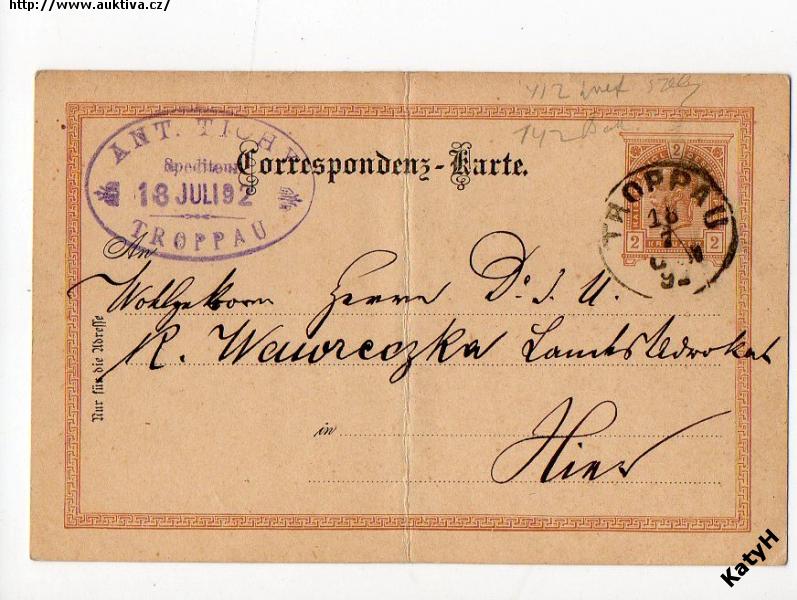 http://www.auktiva.cz/
ANT. TICHY
Spediteur
18 JULI 92
TROPPAU
Correspondenz-Karte.
2
2 KREUZER 2
TROPPAU
18
7
92
An
Wohlgeborn Herrn D: J. U.
K. Wawreczka Landesadvokat
in Hier
Nur für die Adresse
KatyH